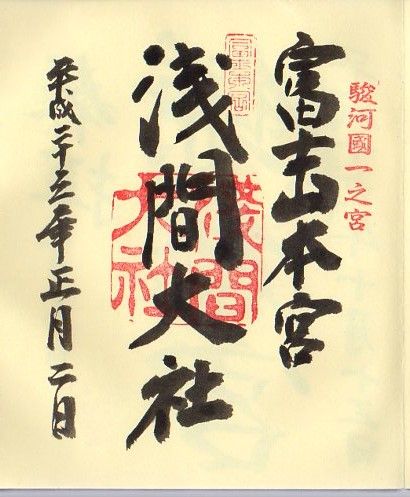 駿河國一之宮
富士山本宮
浅間大社
平成二十三年正月二日
淺間大社